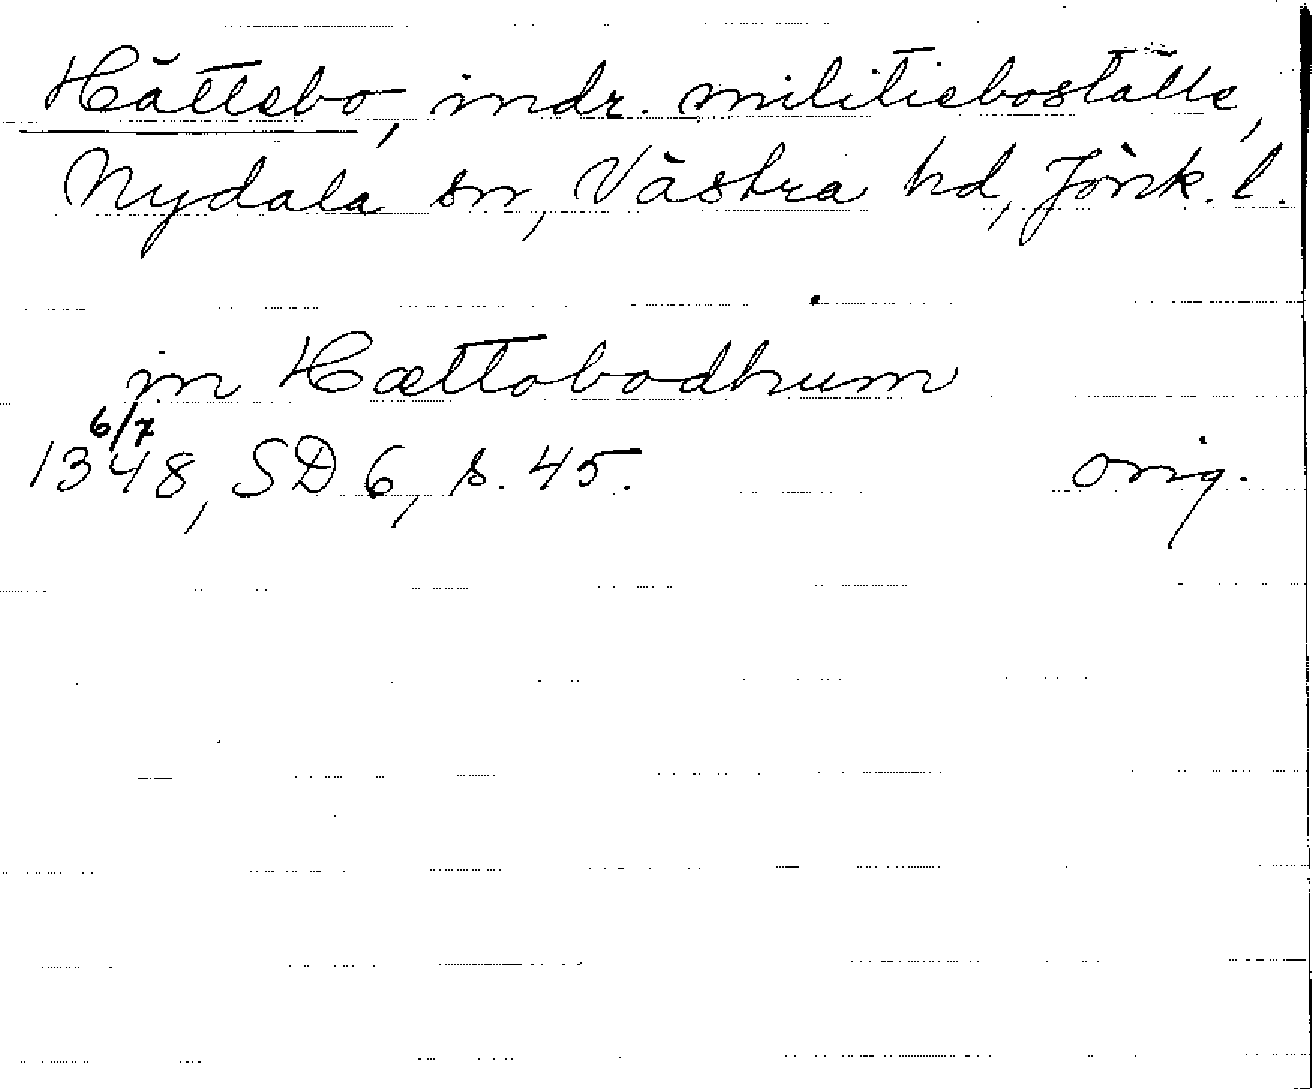 Hättebo, indr. militieboställe,
Nydala sn, Västra hd, Jönk. l.
in Hættobodhum
6/7
1348, SD 6, s. 45. orig.